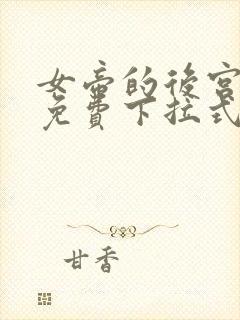 女帝的後宮
免費下拉式
甘香